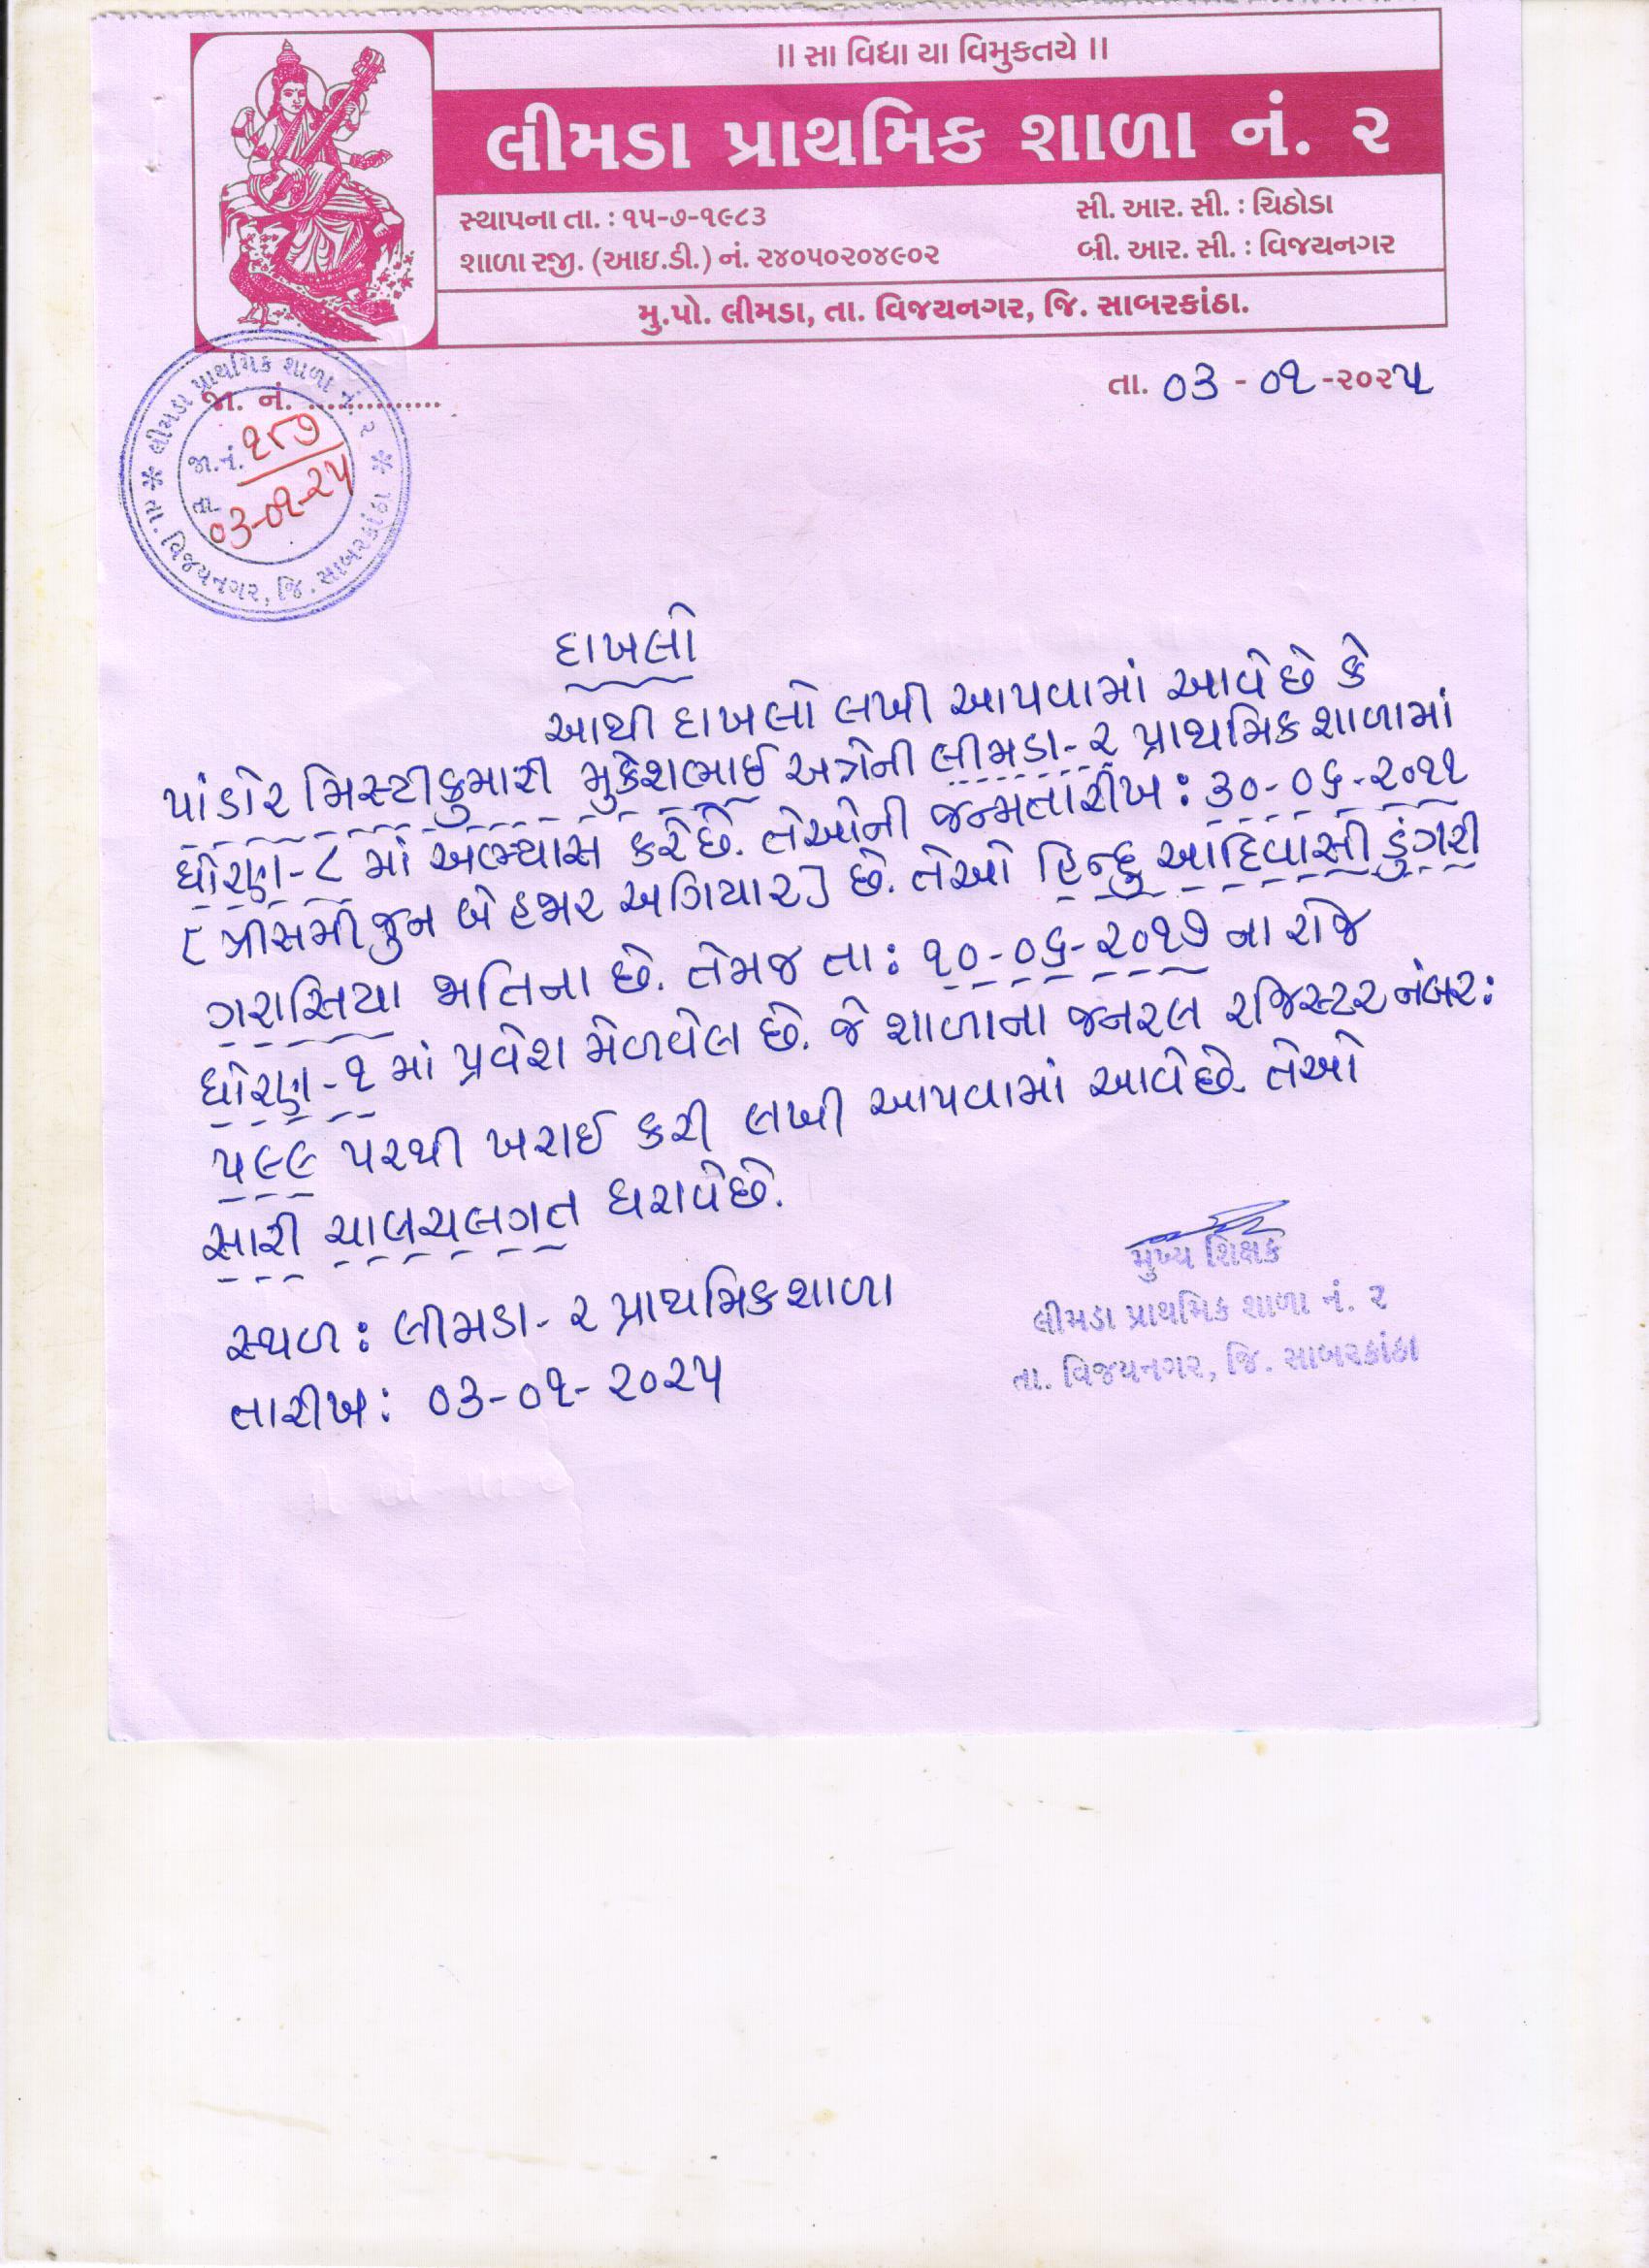 ॥ સા વિદ્યા યા વિમુકતયે ॥
લીમડા પ્રાથમિક શાળા નં. ૨
સ્થાપના તા. : ૧૫-૭-૧૯૮૩
સી. આર. સી. : ચિઠોડા
શાળા રજી. (આઇ.ડી.) નં. ૨૪૦૫૦૨૦૪૯૦૨
બી. આર. સી. : વિજયનગર
મુ.પો. લીમડા, તા. વિજયનગર, જિ. સાબરકાંઠા.
જા. નં. ..............
તા. ૦૩ - ૦૧ -૨૦૨૫
લીમડા પ્રાથમિક શાળા નં. ૨
જા.નં. ૧૮૭
તા. ૦૩-૦૧-૨૫
તા. વિજયનગર, જિ. સાબરકાંઠા
દાખલો
આથી દાખલો લખી આપવામાં આવે છે કે
પાંડોર મિસ્ટીકુમારી મુકેશભાઈ અત્રેની લીમડા-૨ પ્રાથમિક શાળામાં
ધોરણ-૮ માં અભ્યાસ કરે છે. તેઓની જન્મતારીખ : ૩૦-૦૬-૨૦૧૧
[ ત્રીસમી જુન બે હજાર અગિયાર] છે. તેઓ હિન્દુ આદિવાસી ડુંગરી
ગરાસિયા જાતિના છે. તેમજ તા : ૧૦-૦૬-૨૦૧૭ ના રોજ
ધોરણ-૧ માં પ્રવેશ મેળવેલ છે. જે શાળાના જનરલ રજિસ્ટર નંબર :
૫૯૯ પરથી ખરાઈ કરી લખી આપવામાં આવે છે. તેઓ
સારી ચાલચલગત ધરાવે છે.
સ્થળ : લીમડા- ૨ પ્રાથમિક શાળા
તારીખ : ૦૩-૦૧- ૨૦૨૫
મુખ્ય શિક્ષક
લીમડા પ્રાથમિક શાળા નં. ૨
તા. વિજયનગર, જિ. સાબરકાંઠા